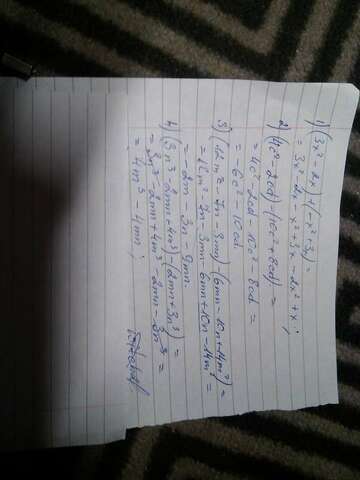 1) (3x² - 2x) + (-x² + 3x) =
= 3x² - 2x - x² + 3x = 2x² + x;
2) (4c² - 2cd) - (10c² + 8cd) =
= 4c² - 2cd - 10c² - 8cd =
= -6c² - 10cd
3) (12m² - 7n - 3mn) - (6mn - 10n + 14m²) =
= 12m² - 7n - 3mn - 6mn + 10n - 14m² =
= -2m - 3n - 9mn
4) (3n³ - 2mn + 4m³) - (2mn + 3n³) =
= 3n³ - 2mn + 4m³ - 2mn - 3n³ =
= 4m³ - 4mn;